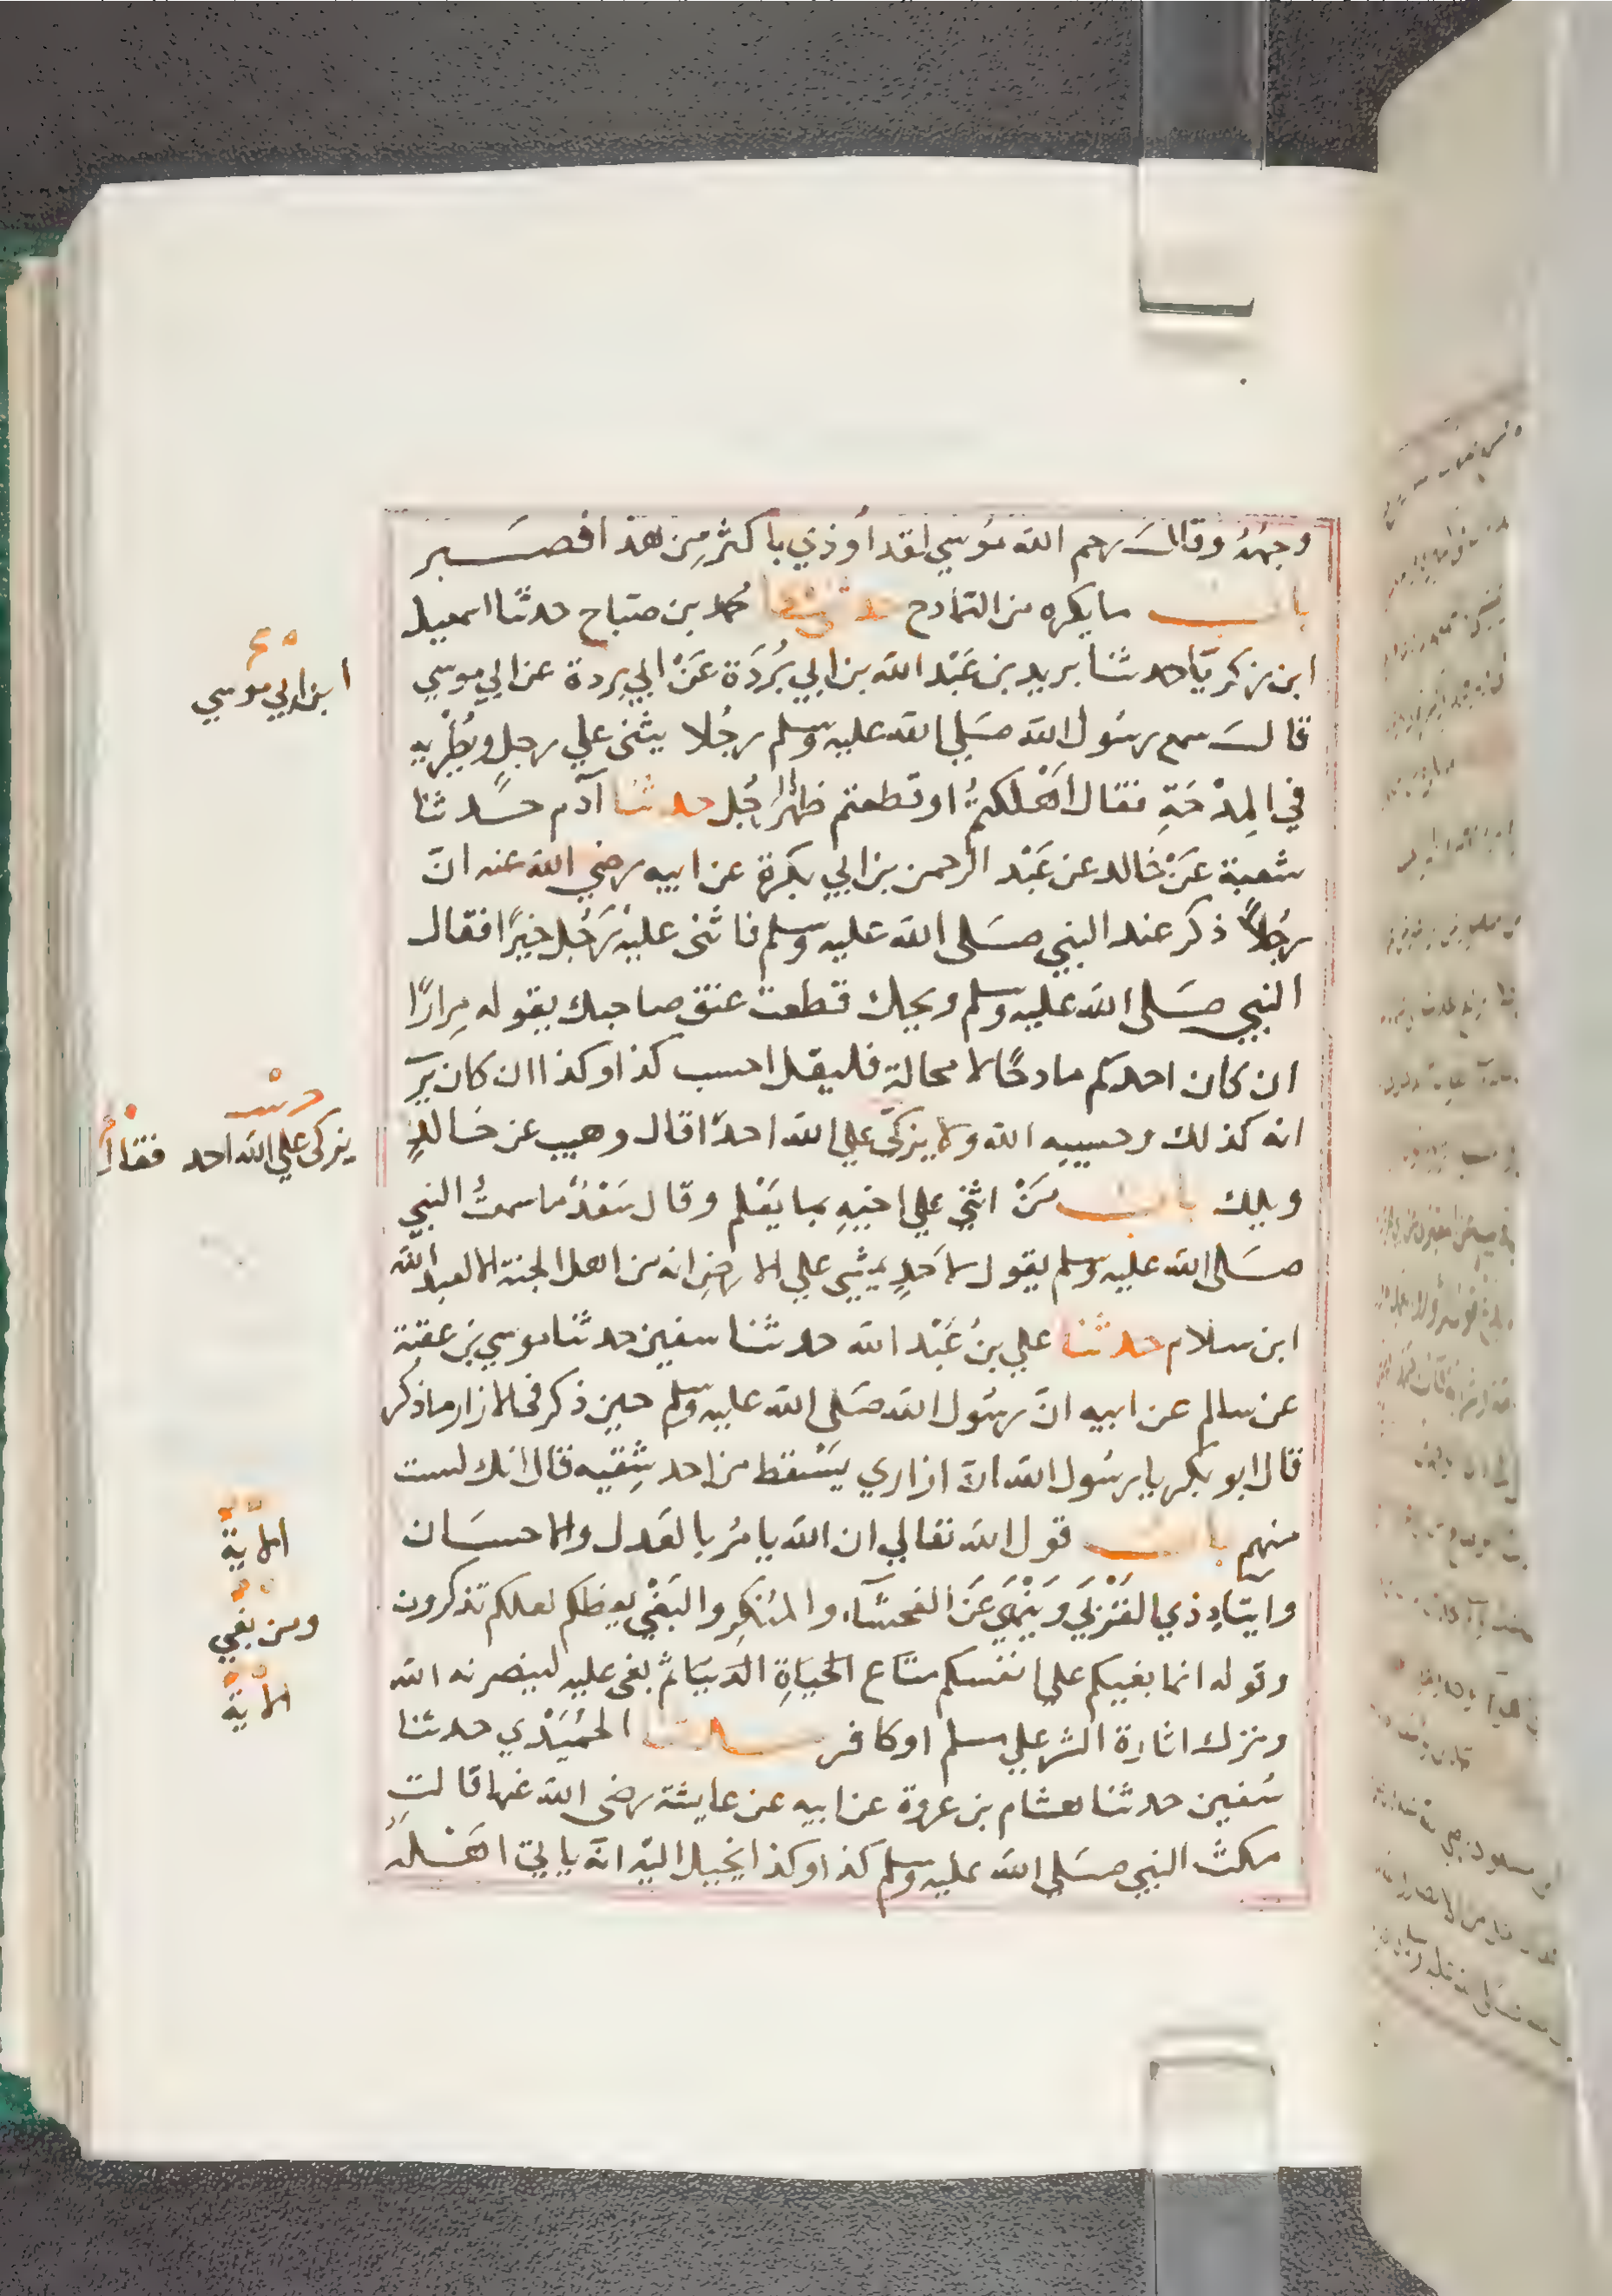 وجهه وقال رحم الله موسي لقد اُوذي باكثر مِن هذا فصبر
باب ما يكره من التمادح حدثنا محمد بن صبّاح حدثنا اسمعيل
ابن زكريّا حدثنا بريد بن عَبْد الله بن ابي بُردَة عَنْ ابي بردة عن ابي موسي
قال سمع رسُول الله صَلى الله عليه وسلم رجُلا يثنى علي رجلٍ ويُطْريه
في المِدْحَةِ فقال اَهْلكتمُ او قطعتم ظهرَ الرجُل حدثنا آدم حَدثنا
شعبة عَنْ خالد عن عَبْد الرحمن بن ابي بكرة عن ابيه رضي الله عنه انّ
رجُلاً ذكر عند النبي صَلى الله عليه وسلم فاثنى عليْه رَجُل خيرًا فقال
النبي صَلى الله عليه وسلم ويحك قطعت عنق صاحبك يقوله مِرارًا
ان كان احدكم مادحًا لا محالة فليقل احسب كذا وكذا ان كان يَرَي
انه كذلك وحسيبه الله ولا يزكّي علي الله احدًا قال وهيب عن خالدٍ
ويلك باب مَنْ اثني علي اخيهِ بما يَعْلم وقال سَعْدٌ ما سمعتُ النبي
صَلى الله عليه وسلم يقول لاحَدٍ يمْشي علي الارضِ انه من اهل الجنة الا لعبد الله
ابن سلام حدثنا علي بنُ عَبْد الله حدثنا سفين حدثنا موسي بن عقبة
عن سالم عن ابيه انَّ رسُول الله صَلى الله عليه وسلم حين ذكر في الازار ما ذكر
قال ابو بكر يا رسُول الله انّ ازاري يَسْقط من احد شِقيه قال انك لست
منهم باب قول الله تعالي ان الله يامُر بالعَدل والاحسَان
وايتاءِ ذي القُرْبَي وَيَنْهَي عَنَ الفحشآء والمُنكِر والبَغْي يعظكم لعلكم تذكرون
وقوله انما بغيكم علي انفسكم متاع الحيَاةِ الدنيَا ثم بغى عليه لينصرنه الله
وترك اثارة الشر علي مسلم او كافر حدثنا الحُمَيْدي حدثنا
سُفين حدثنا هشام بن عروة عن ابيه عن عايشة رضى الله عنها قالت
مكث النبي صَلى الله عليه وسلم كذا وكذا يخيل اليْه انّه ياتي اهَلهُ
ابن ابي موسي
يزكى علي الله احد
فقال
الاية
ومن بغي
الاية